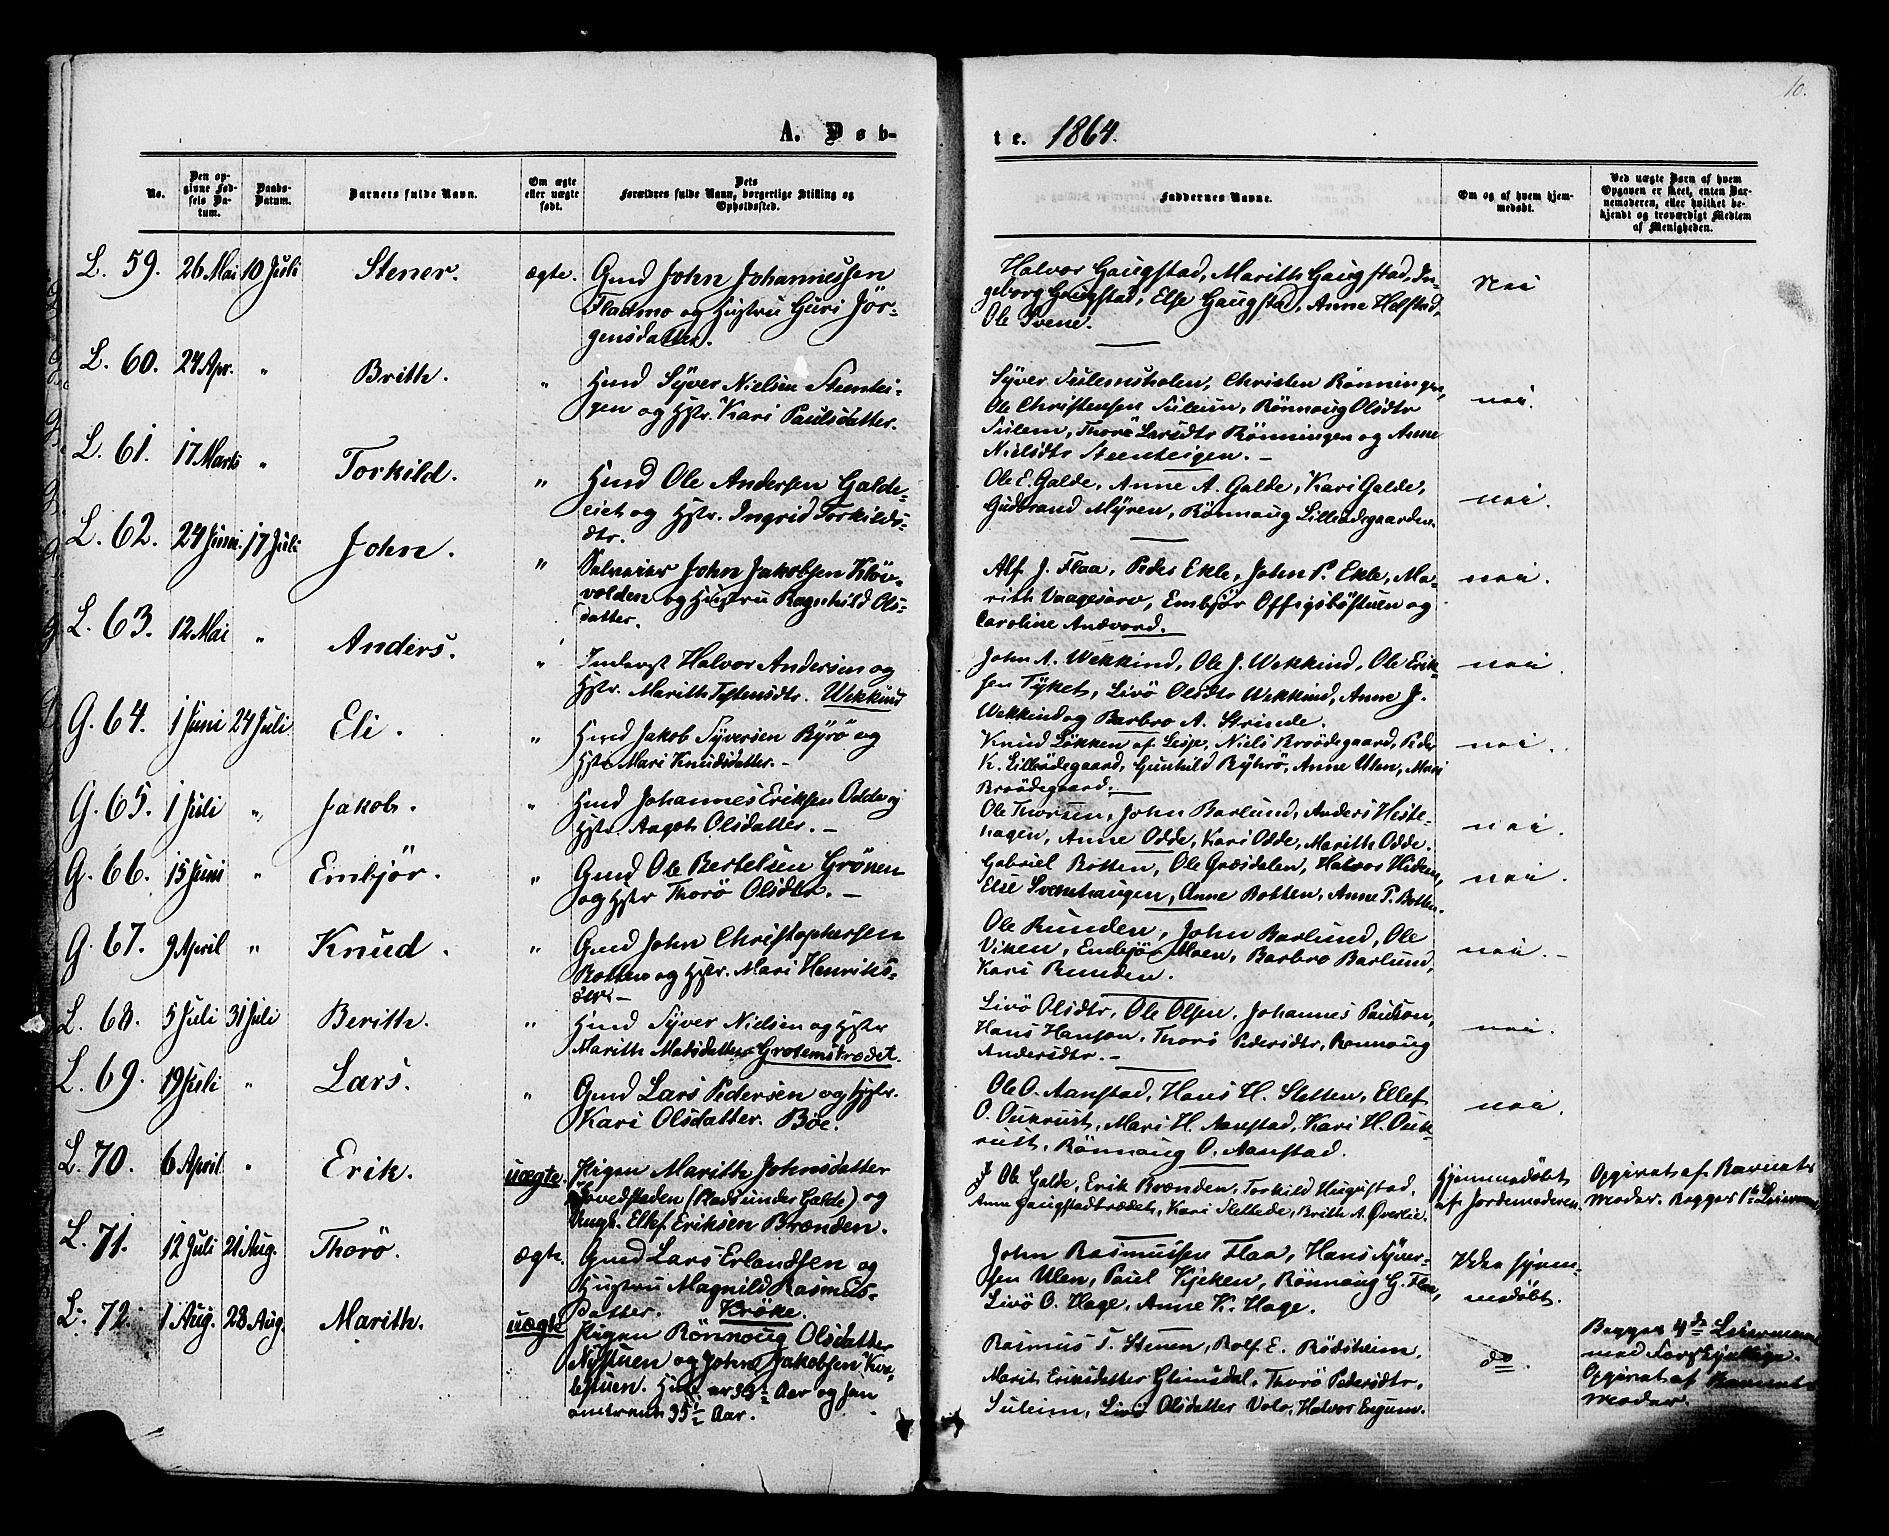 10.
A. Døb-
te. 1864.
No.
Den op-
givne Fød-
sels Da-
tum.
Daabs-
Datum.
Barnets fulde Navn.
Om ægte
eller uægte
født.
Dets
Forældres fulde Navn, borgerlige Stilling og
Opholdssted.
Faddernes Navne.
Om og af hvem hjem-
medøbt.
Ved uægte Børn af hvem
Opgaven er skeet, enten Bar-
nemoderen, eller hvilket be-
kjendt og troværdigt Medlem
af Menigheden.
L. 59. 26 Mai 10 Juli Stener. ægte. Gmd John Johannessen
Fladmo og Hustru Guri Jör-
gensdatter.
Halvor Gaugstad, Marith Gaugstad, In-
geborg Gaugstad, Else Gaugstad, Anne Holstad,
Ole Svene.
Nei
L. 60. 24 Apr. " Brith. " Hmd Syver Nielsen Steentei-
gen og Hstr. Kari Paulsdatter.
Syver Sulemsholen, Christen Rönningen,
Ole Christensen Suleim, Rönnoug Olsdtr
Sulem, Thorö Larsdtr Rönningen og Anne
Nielsdtr Steenteigen.
nei.
L. 61. 17 Marts " Torkild. " Hmd Ole Andersen Galde-
eiet og Hstr. Ingrid Torkilds-
dtr.
Ole E. Galde, Anne A. Galde, Kari Galde,
Gudbrand Myren, Rönnoug Lilleödegaarden.
nei.
L. 62. 24 Juni 17 Juli John. " John Jakobsen Klöv-
volden og Hustru Ragnhild Ols-
datter.
Alf J. Flaa, Peder Ekle, John P. Ekle, Ma-
rith Vaagesaro, Embjör Offigsböstuen og
Caroline Andvord.
nei.
L. 63. 12 Mai " Anders. " Inderst Halvor Andersen og
Hstr. Marith Tostensdtr. Wekkind
John A. Wekkind, Ole J. Wekkind, Ole Erik-
sen Tyket, Livö Olsdtr Wekkind, Anne J.
Wekkind og Barbro A. Strinde.
nei.
G. 64. 1 Juni 24 Juli Eli. " Hmd Jakob Syversen Ryrö og
Hstr Mari Knudsdatter.
Knud Lökken af Lesje, Niels Broödegaard, Peder
K. Lilleödegaard, Gunhild Ryhrö, Anne Ulen, Mari
Broödegaard.
nei.
G. 65. 1 Juli " Jakob. " Hmd Johannes Eriksen Odde og
Hstr. Aagoth Olsdatter.
Ole Thorsen, John Barlund, Anders Heste-
hagen, Anne Odde, Kari Odde, Marith Odde.
nei.
G. 66. 15 Juni " Embjör. " Gmd Ole Bertelsen Grönen
og Hstr Thorö Olsdtr.
Gabriel Botten, Ole Græsdalen, Halvor Hidem,
Else Svenshaugen, Anne Botten, Anne P. Botten.
nei.
G. 67. 9 April " Knud. " Gmd John Christophersen
Botten og Hstr. Mari Henriks-
dtr.
Ole Runden, John Barlund, Ole
Viken, Embjör Moen, Barbro Barlund,
Kari Runden.
nei.
L. 68. 5 Juli 31 Juli Berith. " Hmd Syver Nielsen og Hstr
Marith Madsdatter Grotemstrædet.
Livö Olsdtr, Ole Olsen, Johannes Paulson,
Hans Hanson, Thorö Pedersdtr, Rönnoug
Andersdtr.
nei.
L. 69. 19 Juli " Lars. " Gmd Lars Pedersen og Hstr.
Kari Olsdatter. Böe.
Ole O. Aanstad, Hans H. Sletten, Ellef
O. Oukrust, Mari H. Aanstad, Kari H. Ouk-
rust, Rönnoug O. Aanstad.
nei.
L. 70. 6 April " Erik. uægte. Pigen Marith Johnsdatter
Hovedstaden (Plads under Galde) og
Ungk. Ellef Eriksen Brænden.
Ole Galde, Erik Brænden, Torkild Hugustad,
Anne Gaugstadtrædet, Kari Slettede, Brith A. Överlie.
Hjemmedöbt
af Jordemoderen.
Opgivet af Barnets
Moder. Begges 1ste Leiermaal.
L. 71. 12 Juli 21 Aug. Thorö. ægte. Gmd Lars Erlandsen og
Hustru Magnild Rasmus-
datter. Kröke.
John Rasmussen Flaa, Hans Syver-
sen Ulen, Paul Kjeken, Rönnoug G. Flaa,
Livö O. Hage, Anne K. Hage.
Ikke hjem-
medöbt.
L. 72. 1 Aug. 28 Aug. Marith. uægte Pigen Rönnoug Olsdatter
Nystuen og John Jakobsen Kva-
lestuen. Hun er 33½ Aar og han
omtrent 35½ Aar.
Rasmus T. Stenen, Rolf E. Rödsheim,
Marit Eriksdatter Glimsdal, Thorö Pedersdtr,
Suleim, Livö Olsdatter Volo, Halvor Engum.
do.
Begges 4de Leiermaal
med Forskjellige.
Opgivet af Barnets
Moder.